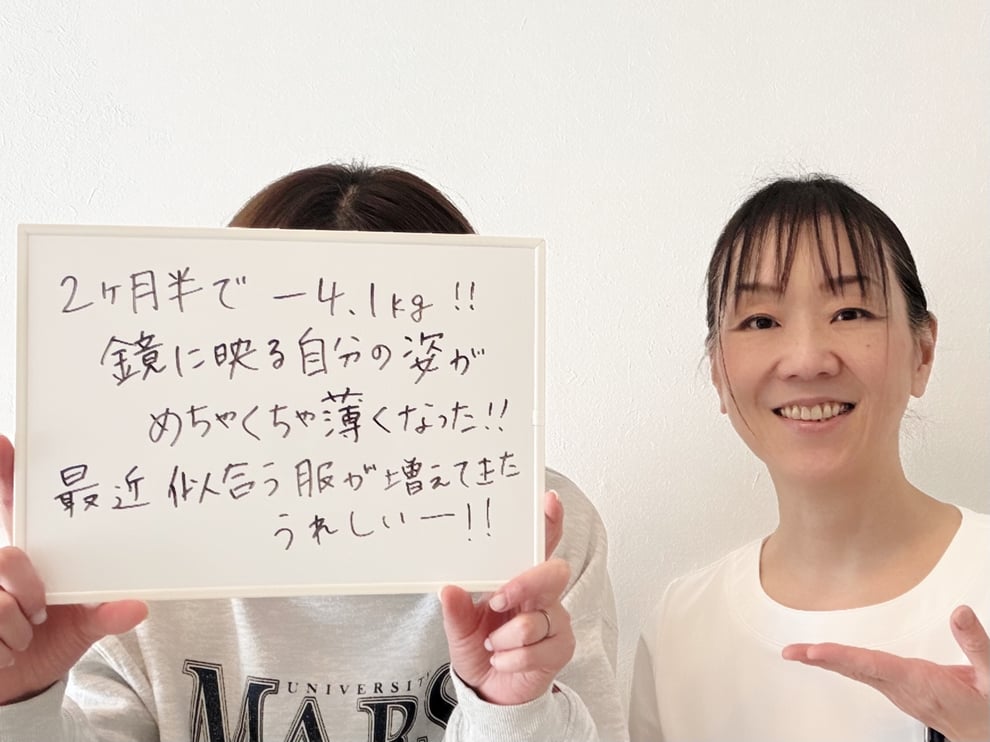 2ヶ月半で -4.1kg!!
鏡に映る自分の姿が
めちゃくちゃ薄くなった!!
最近 似合う服が増えてきた
うれしいー!!
UNIVERSITY
MARS